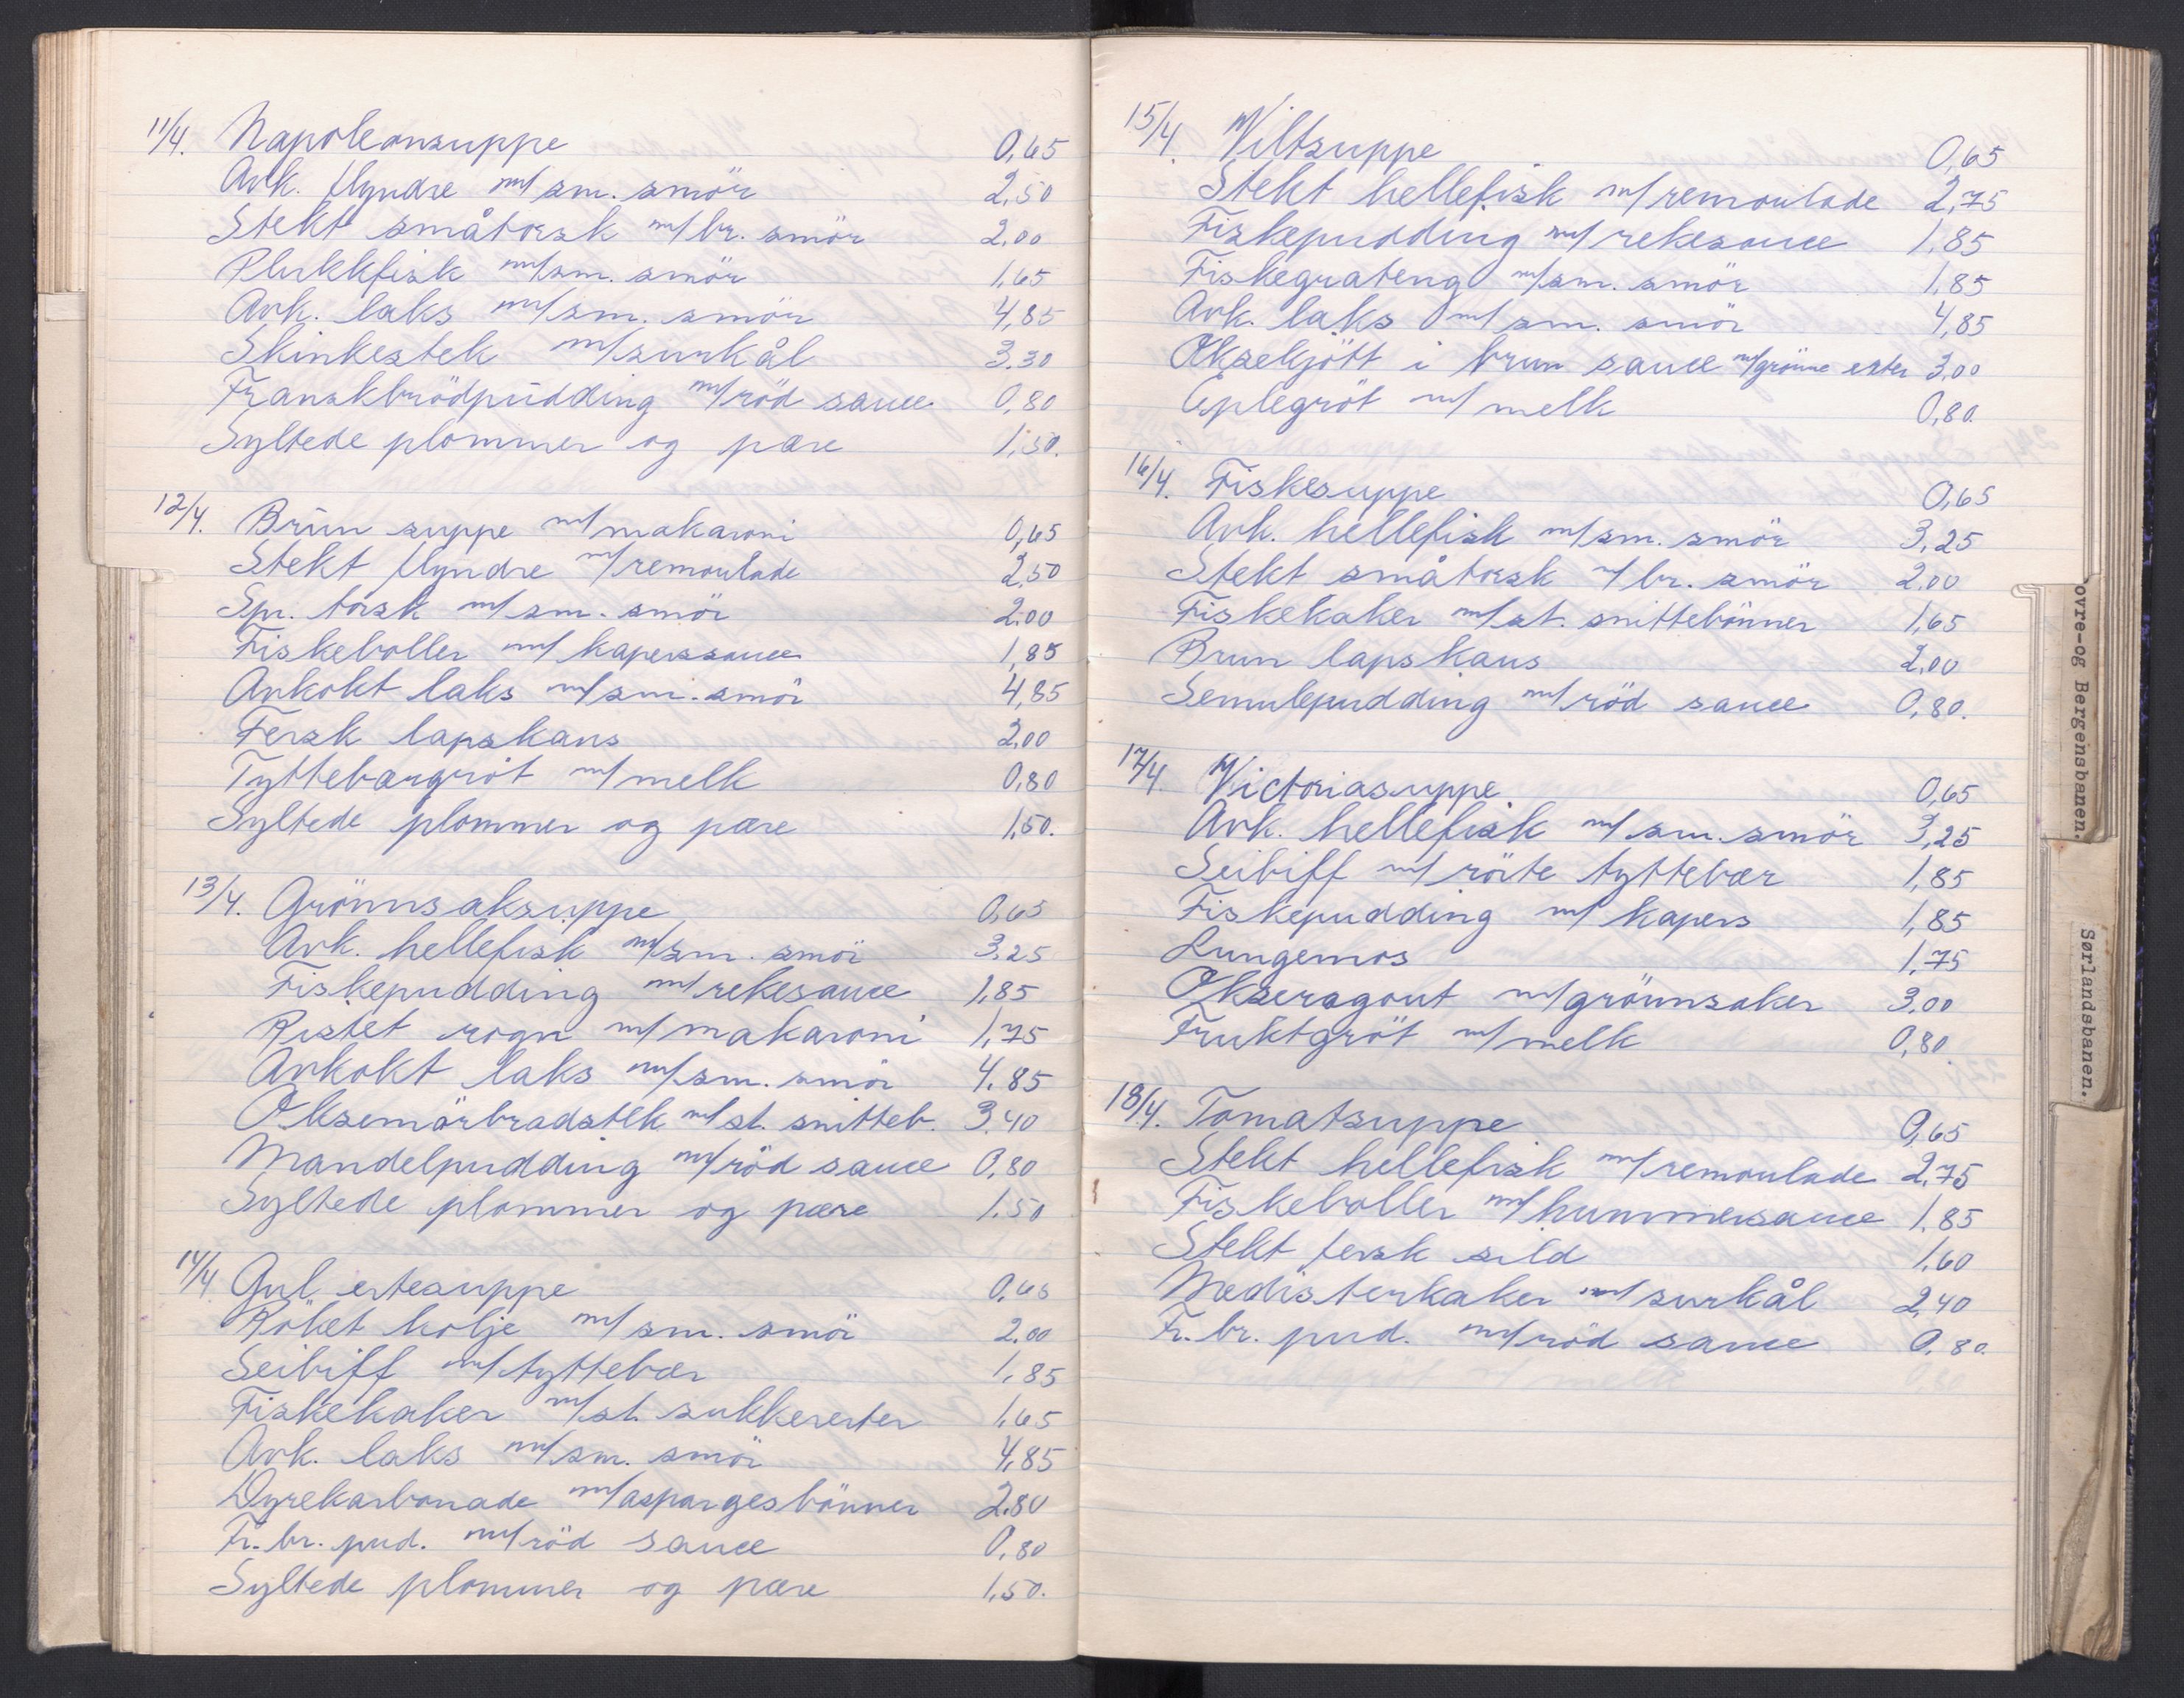 11/4. Napoleonsuppe 0,65
Avk. flyndre m/sm. smör 2,50
Stekt småtorsk m/br. smör 2,00
Plukkfisk m/sm. smör 1,65
Avk. laks m/sm. smör 4,85
Skinkestek m/surkål 3.30
Franskbrödpudding m/röd sauce 0,80
Syltede plommer og pære 1,50.
12/4. Brun suppe m/makaroni 0,65
Stekt flyndre m/remoulade 2,50
Spr. torsk m/sm. smör 2.00
Fiskeboller m/kaperssauce 1,85
Avkokt laks m/sm. smör 4,85
Fersk lapskaus 2.00
Tyttebærgröt m/melk 0,80
Syltede plommer og pære 1,50.
13/4. Grönnsaksuppe 0,65
Avk. hellefisk m/sm. smör 3,25
Fiskepudding m/rekesauce 1,85
Ristet rogn m/makaroni 1,75
Avkokt laks m/sm. smör 4.85
Oksemörbradstek m/st. snitteb. 3.40
Mandelpudding m/röd sauce 0,80
Syltede plommer og pære 1.50
14/4 Gul ertesuppe 0,65
Röket kolje m/sm. smör 2.00
Seibiff m/tyttebær 1,85
Fiskekaker m/st. sukkererter 1,65
Avk. laks m/sm. smör 4,85
Dyrekarbonade m/aspargesbönner 2.80
Fr. br. pud. m/röd sauce 0,80
Syltede plommer og pære 1,50.
15/4. Viltsuppe 0,65
Stekt hellefisk m/remoulade 2,75
Fiskepudding m/rekesauce 1,85
Fiskegrateng m/sm. smör 1.85
Avk. laks m/sm. smör 4,85
Oksekjött i brun sauce m/grönne erter 3,00
Eplegröt m/melk 0,80.
16/4. Fiskesuppe 0,65
Avk. hellefisk m/sm. smör 3,25
Stekt småtorsk m/br. smör 2.00
Fiskekaker m/st. snittebönner 1,65
Brun lapskaus 2.00
Semulepudding m/röd sauce 0,80.
17/4. Victoriasuppe 0,65
Avk. hellefisk m/sm. smör 3,25
Seibiff m/rörte tyttebær 1,85
Fiskepudding m/kapers 1,85
Lungemos 1,75
Okseragout m/grönnsaker 3.00
Fruktgröt m/melk 0,80
18/4. Tomatsuppe 0,65
Stekt hellefisk m/remoulade 2,75
Fiskeboller m/hummersauce 1.85
Stekt fersk sild 1.60
Medisterkaker m/surkål 2,40
Fr. br. pud. m/röd sauce 0,80.
ovre-og Bergensbanen.
Sørlandsbanen.